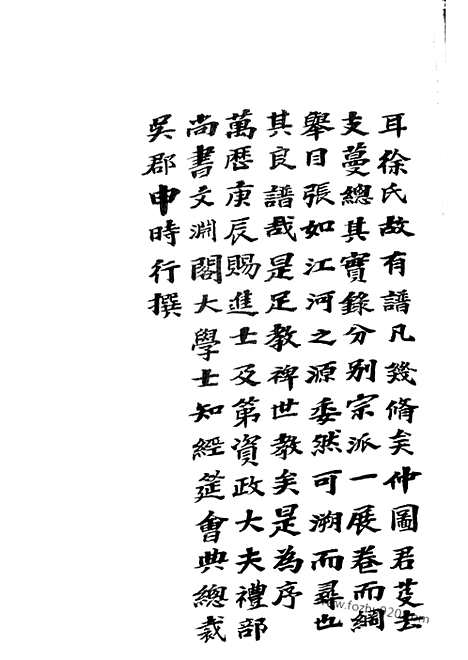 耳徐氏故有譜凡幾脩矣仲圖君芟去
支蔓總其實錄分別宗派一展卷而綱
舉目張如江河之源委然可溯而尋也
其良譜哉是足教裨世教矣是為序
萬歷庚辰賜進士及第資政大夫禮部
尚書文淵閣大學士知經筵會典總裁
吳郡申時行撰
www.fozhu920.com